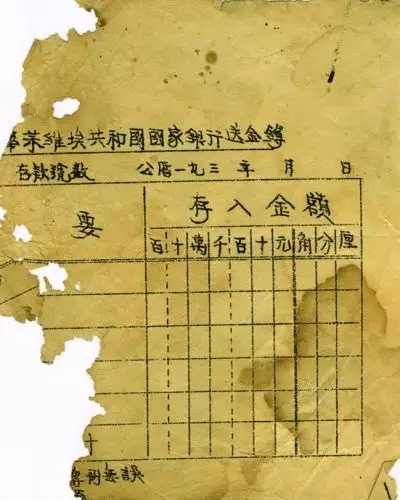 萊維埃共和國國家銀行送金簿
存款號數 公曆一九三 年 月 日
要 存入金額
百十萬千百十元角分厘